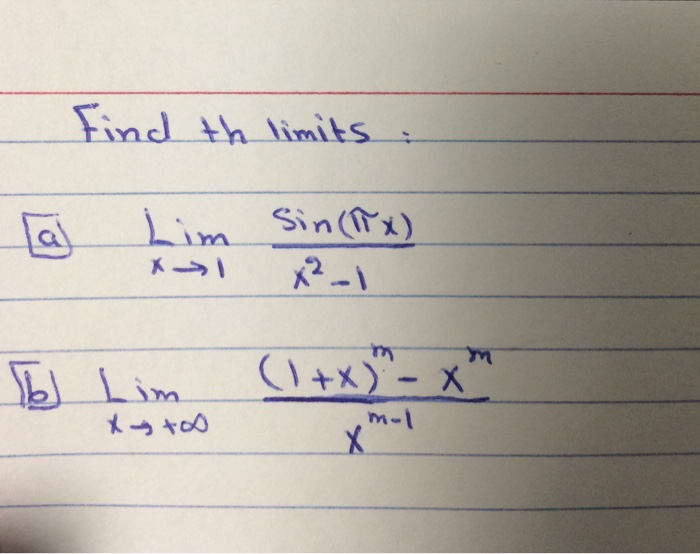 Find th limits :
a Lim x→1 sin(πx) / x² - 1
b Lim x→+∞ (1+x)^m - x^m / x^m-1